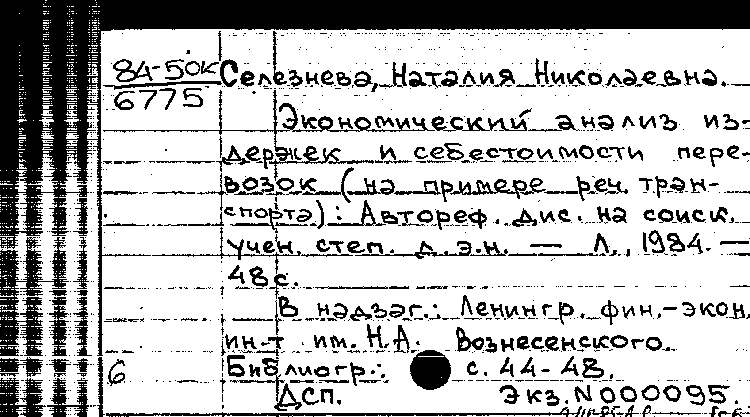 84-5ОК Селезнева, Наталия Николаевна.
6775
Экономический анализ из-
держек и себестоимости пере-
возок (на примере реч. тран-
спорта): Автореф. дис. на соиск.
учен. степ. д.э.н. — Л., 1984. —
48 с.
В надзаг.: Ленингр. фин.-экон.
ин-т им. Н.А. Вознесенского.
6 Библиогр.: с. 44-48.
ДСП. Экз. N 000095.